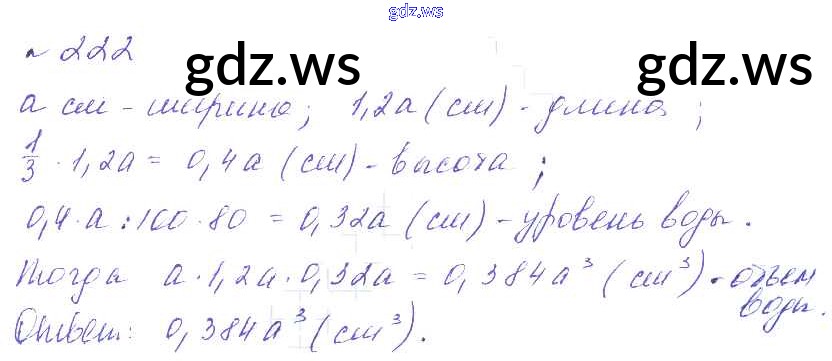 gdz.ws
№ 222
gdz.ws gdz.ws
a см - ширина; 1,2a (см) - длина;
1/3 · 1,2a = 0,4a (см) - высота;
0,4 · a : 100 · 80 = 0,32a (см) - уровень воды.
Тогда a · 1,2a · 0,32a = 0,384a³ (см³) - объем
воды.
Ответ: 0,384a³ (см³).